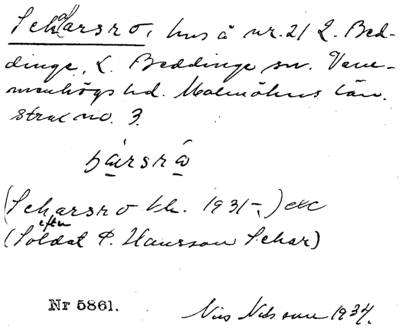 Scharsro, hus å nr. 21 L. Bed-
dinge, L. Beddinge sn. Vem-
menhögs hd. Malmöhus län.
strax no. 3.
(Scharsro kb. 1931-,) etc
efter
(Soldat P. Hansson Schar)
Nr 5861.
Nils Nilsson 1934.